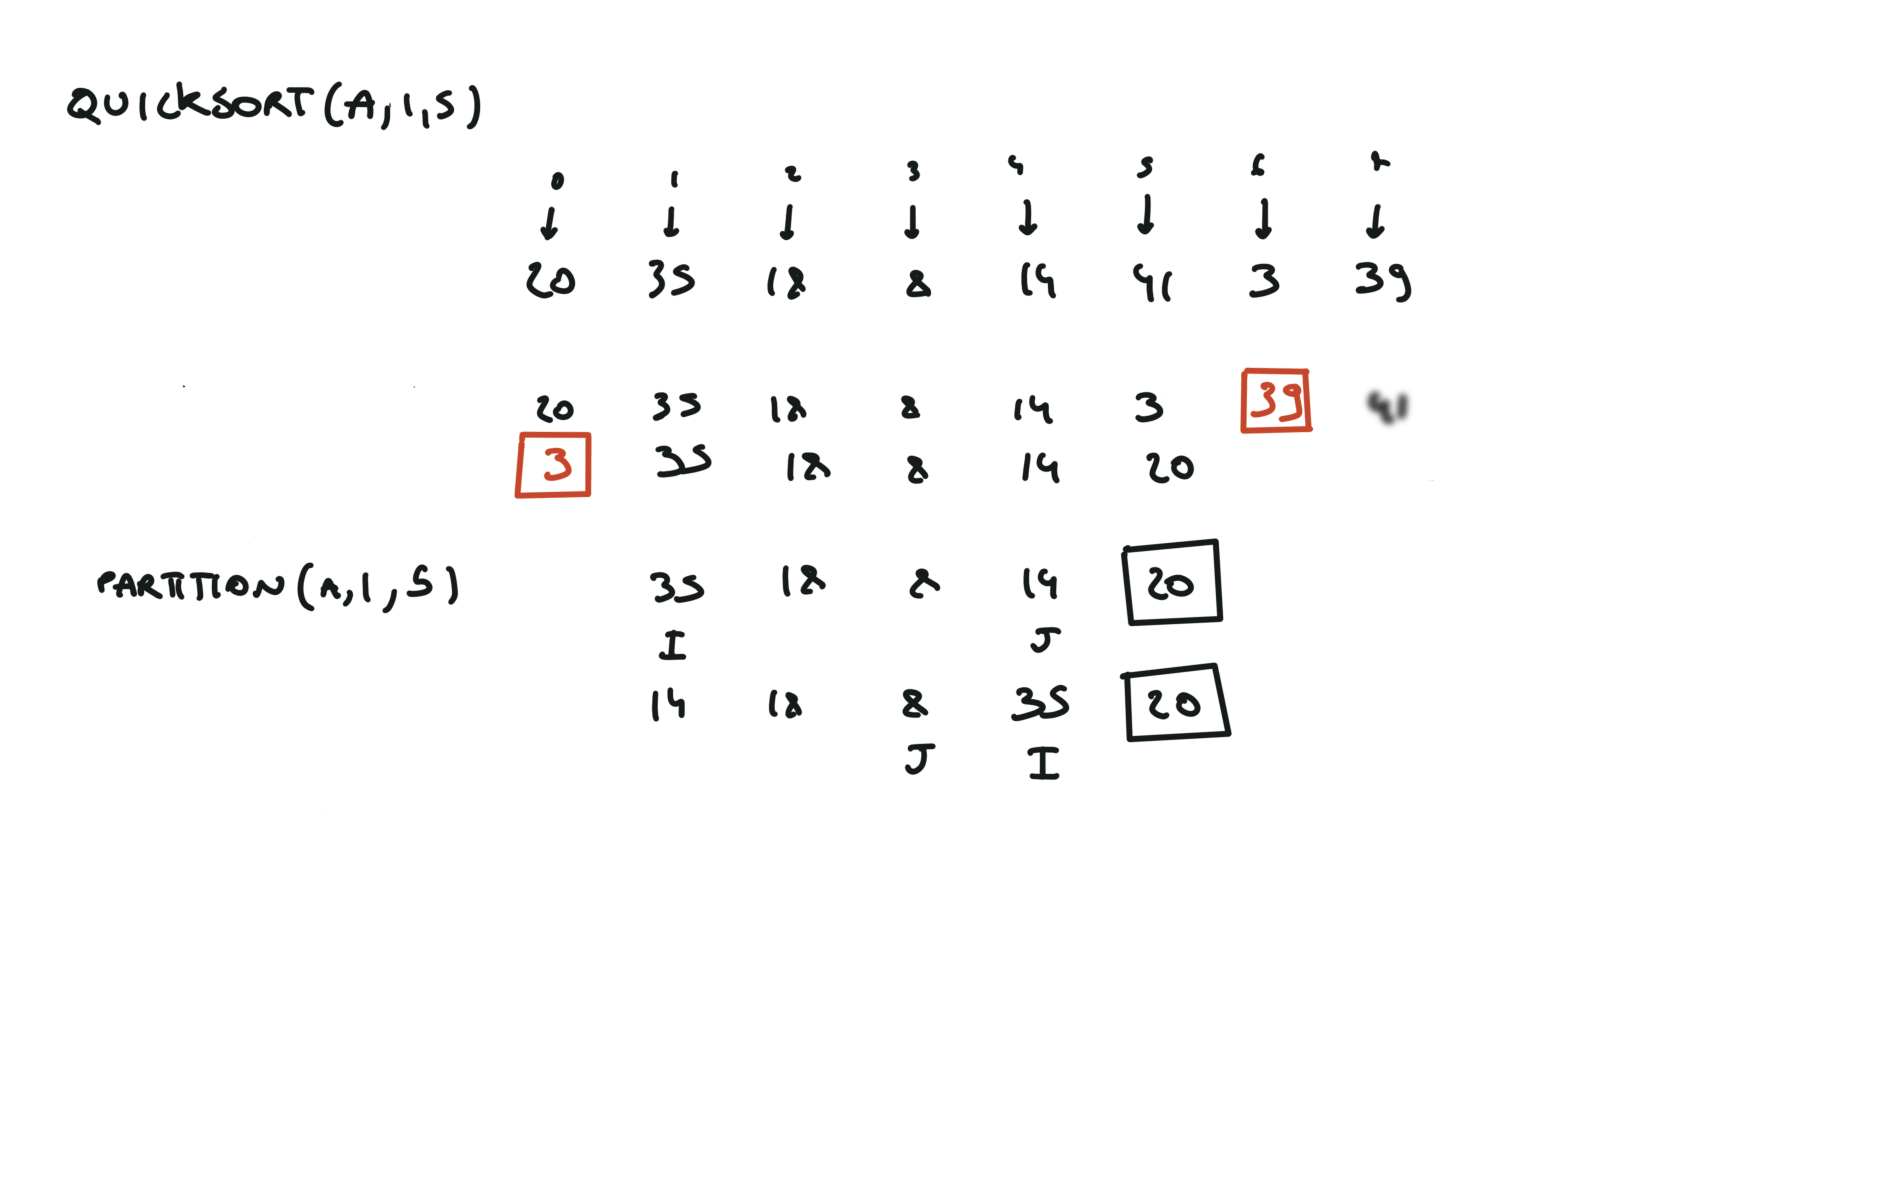 QUICKSORT(A,1,5)
0 1 2 3 4 5 6 7
20 35 18 8 14 41 3 39
20 35 18 8 14 3 39 41
3 35 18 8 14 20
PARTITION(A,1,5) 35 18 8 14 20
I J
14 18 8 35 20
J I